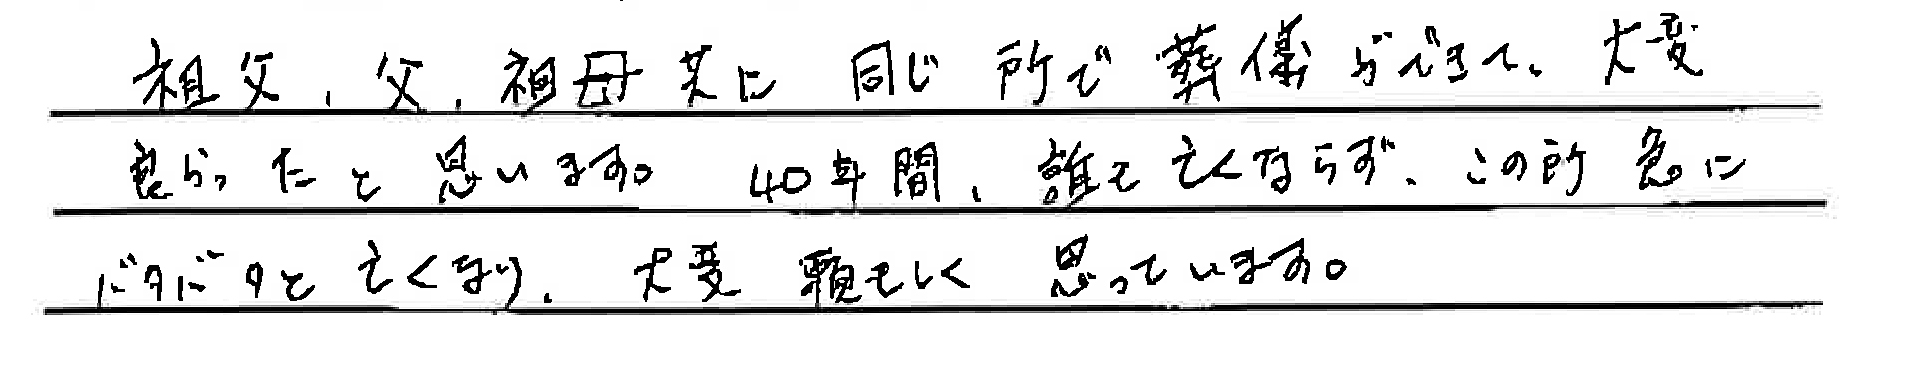 祖父、父、祖母共に同じ所で葬儀ができて、大変
良かったと思います。40年間、誰も亡くならず、この所急に
バタバタと亡くなり、大変頼もしく思っています。